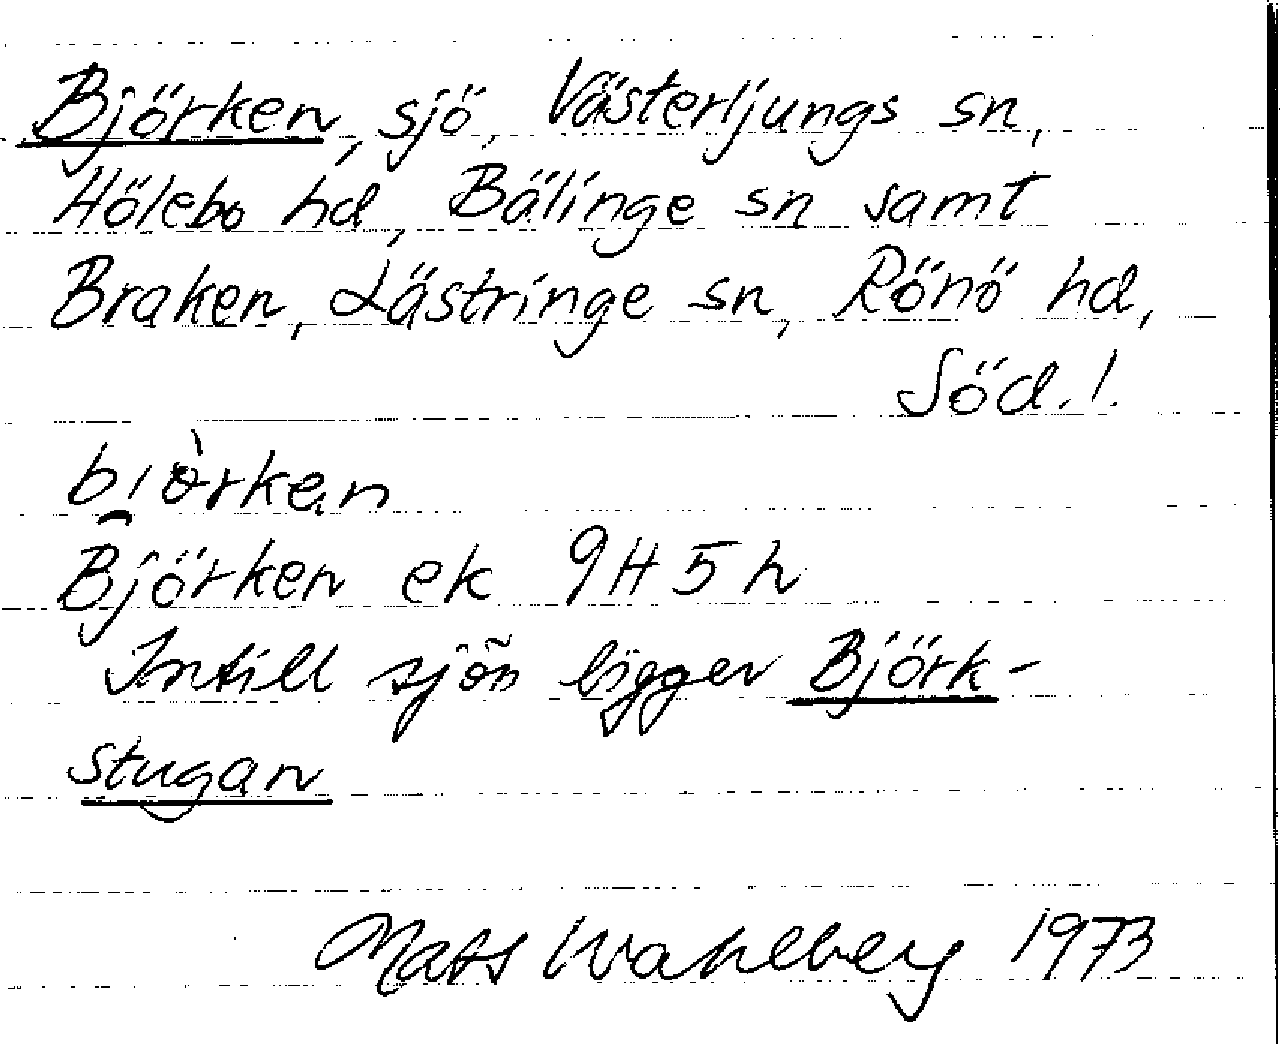 Björken, sjö, Västerljungs sn,
Hölebo hd, Bälinge sn samt
Braken, Lästringe sn, Rönö hd,
Söd.!
bi̯ö̀rken
Björken ek 9H5h
Intill sjön ligger Björk-
stugan
Mats Wahlberg 1973